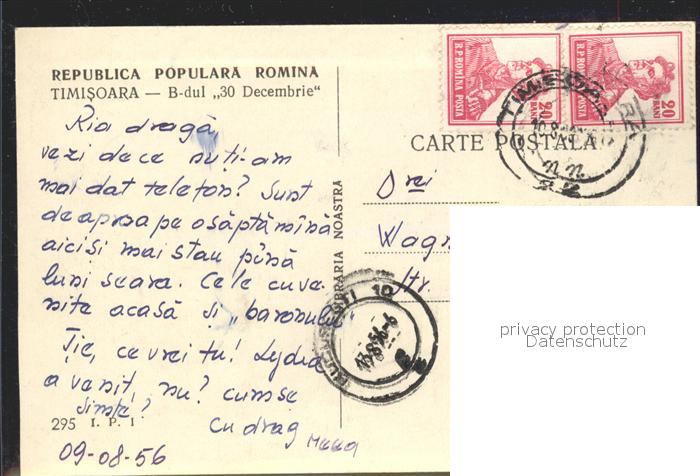 REPUBLICA POPULARĂ ROMINĂ
TIMIȘOARA — B-dul „30 Decembrie“
Ria dragă,
vezi de ce nu ți-am
mai dat telefon? Sunt
de aproape o săptămînă
aici și mai stau pînă
luni seara. Cele cuve-
nite acasă și „baronului“
Ție, ce vrei tu! Lydia
a venit, nu? cum se
simte?
Cu drag
09-08-56
295 I. P. I
LIBRĂRIA NOASTRĂ
R.P.ROMINA POSTA
20
BANI
R.P.ROMINA POSTA
20
BANI
CARTE POSTALĂ
Drei
Wagn
Str.
privacy protection
Datenschutz